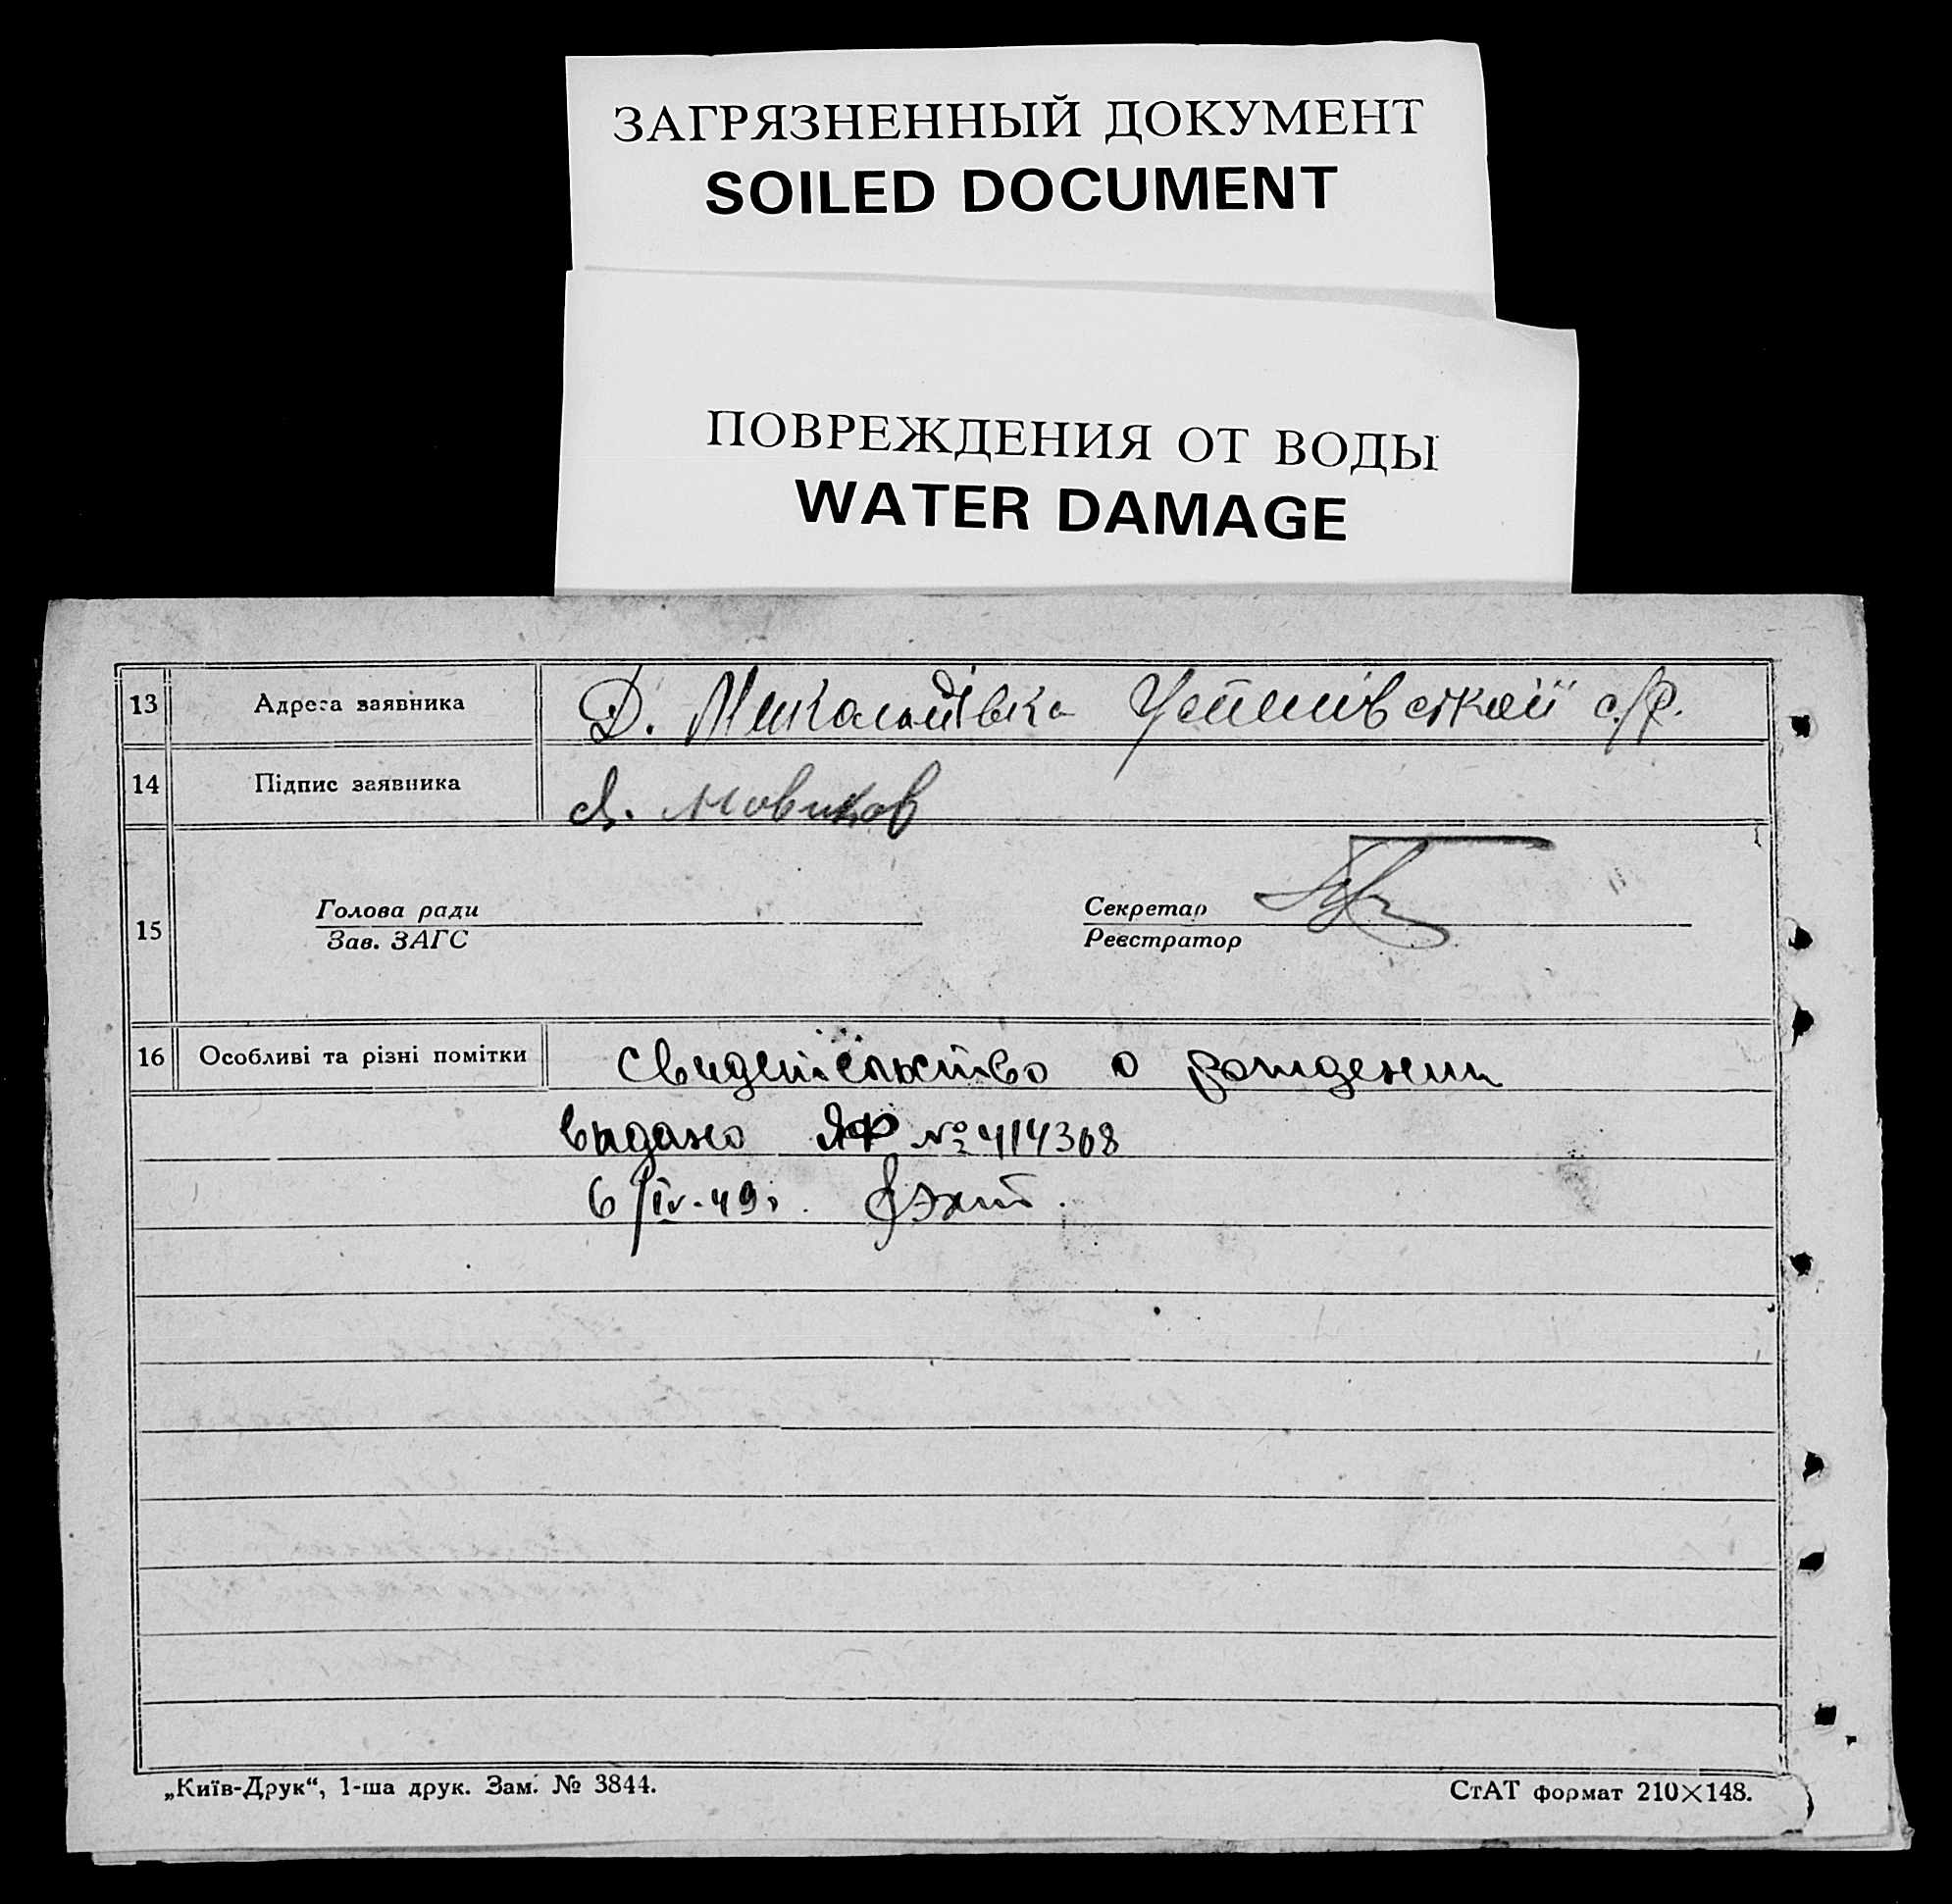 ЗАГРЯЗНЕННЫЙ ДОКУМЕНТ
SOILED DOCUMENT
ПОВРЕЖДЕНИЯ ОТ ВОДЫ
WATER DAMAGE
13 Адреса заявника Д. Миколаївка Успенівської с/р.
14 Підпис заявника Новиков
15 Голова ради Секретар
Зав. ЗАГС Реєстратор
16 Особливі та різні помітки Свидетельство о рождении
выдано ЯФ № 414308
6/IV-49г.
„Київ-Друк“, 1-ша друк. Зам. № 3844. СтАТ формат 210×148.